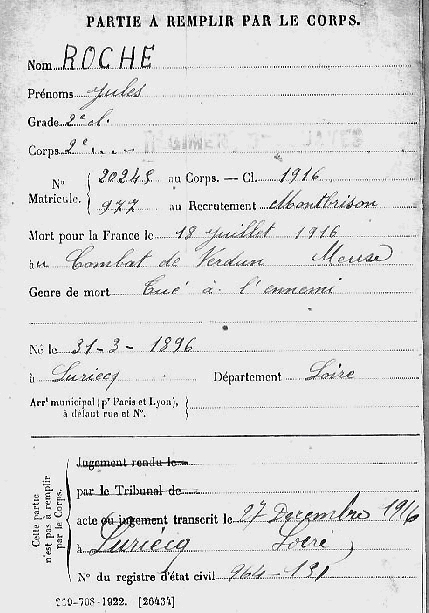 PARTIE À REMPLIR PAR LE CORPS.
Nom ROCHE
Prénoms Jules
Grade 2e cl.
Corps 2e
No Matricule. 20248 au Corps. — Cl. 1916
977 au Recrutement Montbrison
Mort pour la France le 18 Juillet 1916
au Combat de Verdun Meuse
Genre de mort Tué à l'ennemi
Né le 31-3-1896
à Luriecq Département Loire
Arrt municipal (pr Paris et Lyon),
à défaut rue et No.
Cette partie n'est pas à remplir par le Corps.
Jugement rendu le
par le Tribunal de
acte ou jugement transcrit le 27 Decembre 1916
à Luriécq Loire
No du registre d'état civil 964-131
-708-1922. [26434]